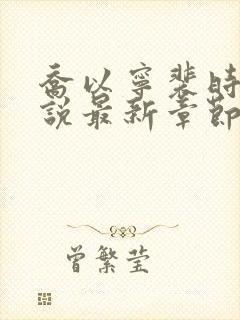 喬以寧裴時
說最新章節
曾繁莹